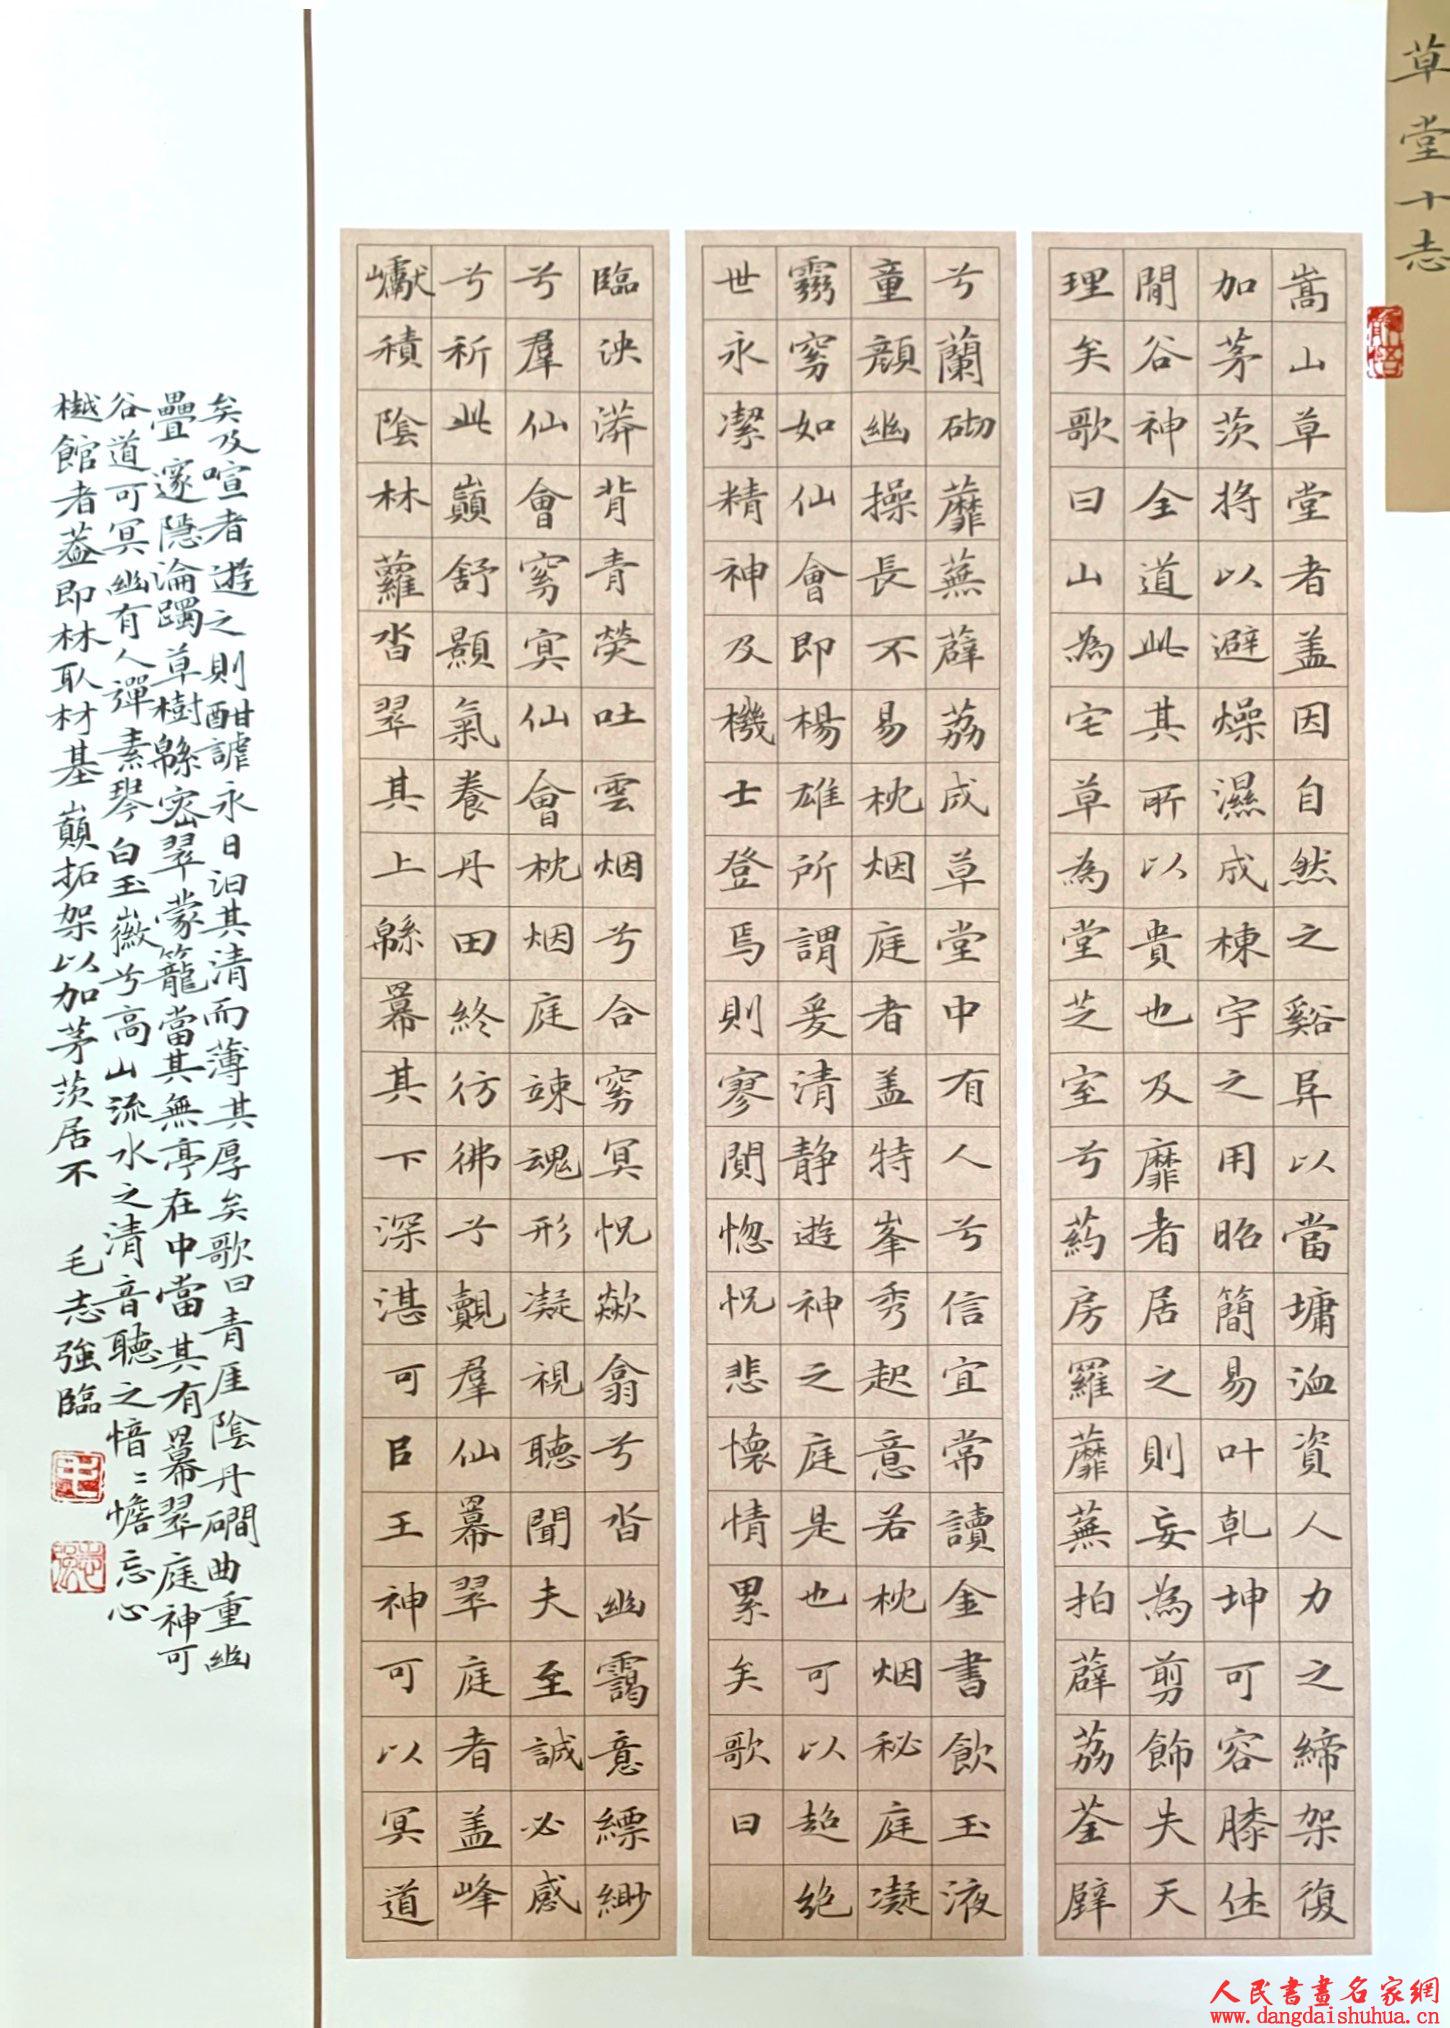 草堂十志
嵩山草堂者盖因自然之谿阜以當墉洫資人力之締架復
加茅茨将以避燥濕成棟宇之用昭簡易叶乹坤可容膝休
閒谷神全道此其所以貴也及靡者居之則妄為剪飾失天
理矣歌曰山為宅草為堂芝室兮药房羅蘼蕪拍薜荔荃壁
兮蘭砌蘼蕪薜荔成草堂中有人兮信宜常讀金書飲玉液
童顔幽操長不易枕烟庭者盖特峯秀起意若枕烟秘庭凝
霧窈如仙會即楊雄所謂爰清靜遊神之庭是也可以超絶
世永潔精神及機士登焉則寥閴惚怳悲懷情累矣歌曰
臨泱漭背青熒吐雲烟兮合窈冥怳歘翕兮沓幽靄意縹緲
兮羣仙會窈冥仙會枕烟庭竦魂形凝視聽聞夫至誠必感
兮祈此巔舒顥氣養丹田終彷彿兮覿羣仙羃翠庭者盖峰
巘積陰林蘿沓翠其上緜羃其下深湛可㠯王神可以冥道
矣及喧者遊之則酣謔永日汩其清而薄其厚矣歌曰青厓陰丹磵曲重幽
疊邃隱淪躅草樹緜密翠蒙籠當其無亭在中當其有羃翠庭神可
谷道可冥幽有人彈素琴白玉徽兮高山流水之清音聽之愔〻憺忘心
樾館者蓋即林取材基巔拓架以加茅茨居不 毛志強臨
人民書畫名家網
www.dangdaishuhua.cn